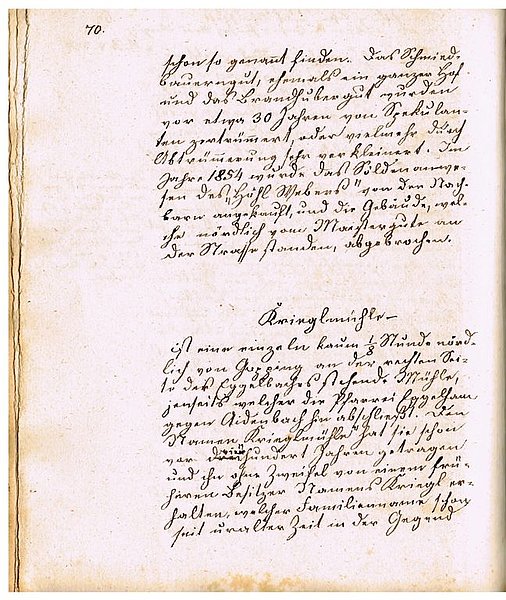 70.
schon so genannt finden. Das Schmied-
bauerngut, ehemals ein ganzer Hof
und das Brandhubergut wurden
vor etwa 30 Jahren von Spekulan-
ten zertrümmert, oder vielmehr durch
Abtrümmerung sehr verkleinert. Im
Jahre 1854 wurde das Söldenanwe-
sen des „Höhl Webers" von den Nach-
barn angekauft, und die Gebäude, wel-
che nördlich vom Maiergute an
der Strasse standen, abgebrochen.
Krieglmühle
ist eine einzeln kaum 1/8 Stunde nörd-
lich von an der rechten Sei-
te des Eggelbaches stehende Mühle,
jenseits welcher die Pfarrei Eggelham
gegen Aidenbach hin abschließt. Den
Namen Krieglmühle" hat sie schon
vor hundert Jahren getragen
und ihn ohne Zweifel von einem frü-
heren Besitzer Namens Kriegl er-
halten, welcher Familienname schon
seit uralter Zeit in der Gegend